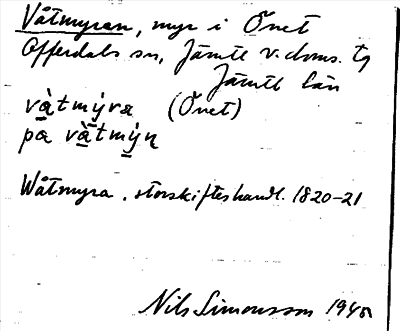 Våtmyran, myr i Önet
Offerdals sn, Jämtl v. doms. tg
Jämtl län
(Önet)
på
Wåtmyra . storskifteshandl. 1820-21
Nils Simonsson